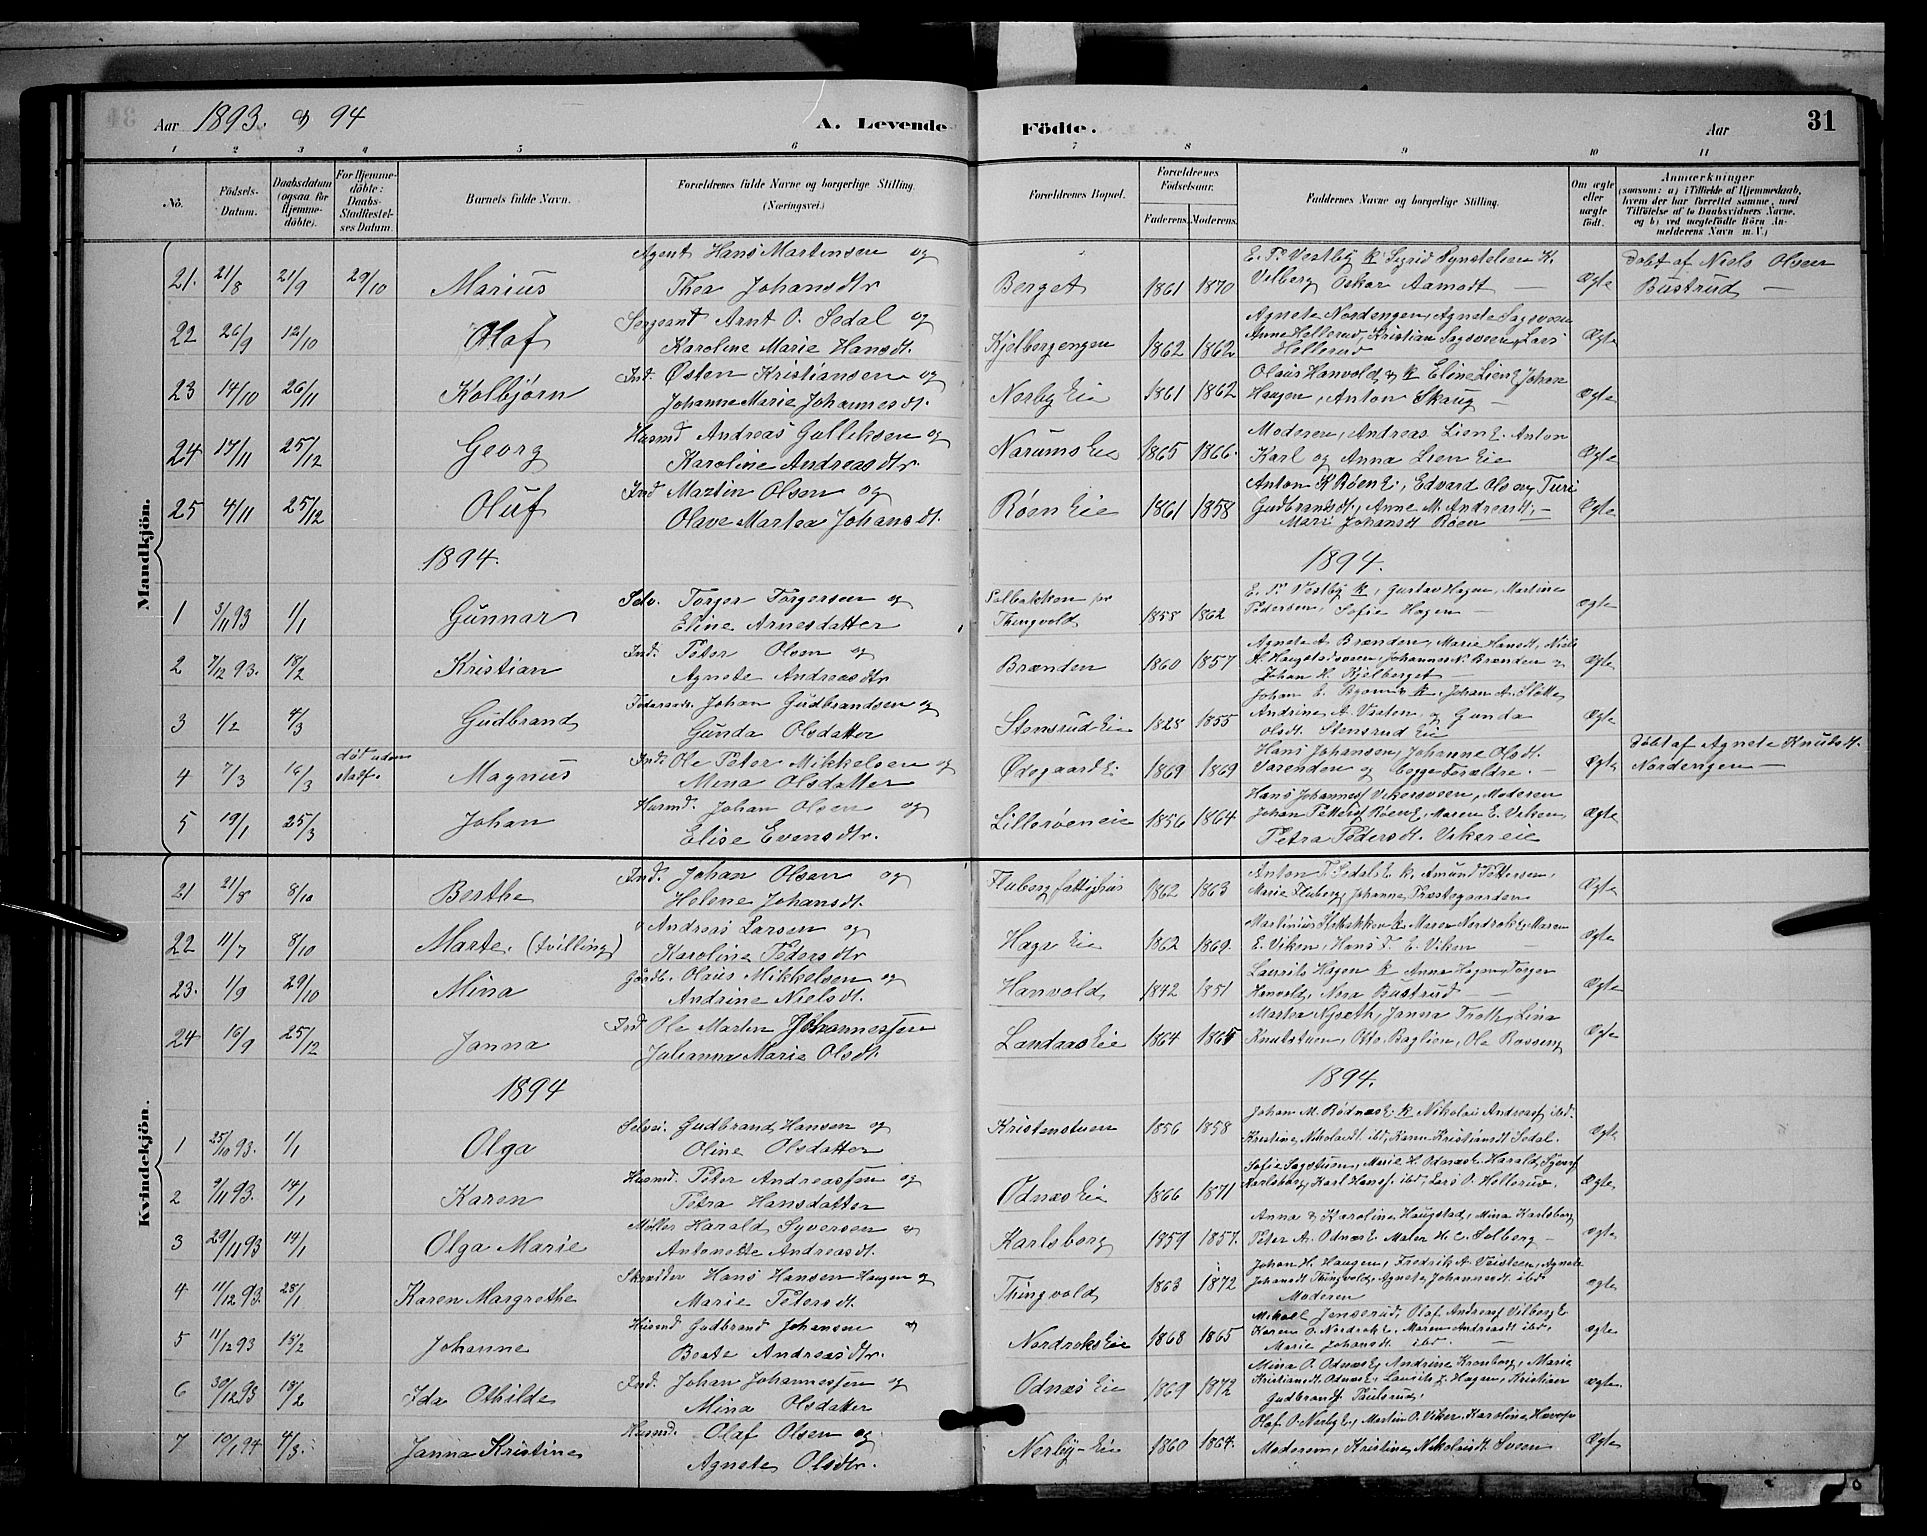 Aar 1893. & 94
A. Levende Födte.
Aar
31
1 2 3 4 5 6 7 8 9 10 11
No.
Födsels-Datum.
Daabsdatum (ogsaa for Hjemmedöbte).
For Hjemmedöbte: Daabs-Stadfæstelses Datum.
Barnets fulde Navn.
Forældrenes fulde Navne og borgerlige Stilling. (Næringsvei.)
Forældrenes Bopæl.
Forældrenes Födselsaar.
Faderens. Moderens.
Faddernes Navne og borgerlige Stilling.
Om ægte eller uægte födt.
Anmærkninger (saasom: a) i Tilfælde af Hjemmedaab, hvem der har forrettet samme, med Tilföielse af to Daabsvidners Navne, og b) ved uægtefödte Börn Anmelderens Navn m. V.)
Mandkjön.
21. 21/8 21/9 29/10 Marius Agent Hans Martensen og Thea Johansdtr Berget 1861 1870 E. Ps Vestby K Sigrid K. Vilberg Oskar Aamodt — Ægte Døbt af Niels Olsen Bustrud —
22 26/9 12/10 Olaf Sergeant Arnt O. Sedal og Karoline Marie Hansdt. Kjelbergengen 1862 1862 Agnete Nordengen, Agnete Sagsveen Anne Hollerud, Kristian Sagsveen, Lars Hollerud Ægte
23 14/10 26/11 Kolbjørn Ind. Østen Kristiansen og Johanne Marie Johannesdt. Nerby Eie 1861 1862 Olaus Hanvold & K Eline Lien E Johan Haugen, Anton Skaug — Ægte
24 17/11 25/12 Georg Husmd Andreas Gulliksen og Karoline Andreasdtr. Narums Eie 1865 1866. Moderen, Andreas Lien E. Anton Karl og Anna Lien Eie Ægte
25 4/11 25/12 Oluf Ind Martin Olsen og Olave Martea Johansdt. Røen Eie 1861 1858 Anton K Røen E., Edvard Olsen, Turi Gudbrandsdt., Anne M. Andreasdt, — Mari Johansdt Røen Ægte
1894. 1894.
1 3/11 93 1/1 Gunnar Selv. Torger Torgersen og Eline Arnesdatter Solbakken pr Thingvold 1858 1862 E. Ps Vestby K, Gustav Hagen, Martine Pedersen, Sofie Hagen — Ægte
2 7/12 93. 18/2 Kristian Ind. Peter Olsen og Agnete Andreasdtr Brænden 1860 1857 Agnete A. Brænden, Marie Hansdt, Niels H. Haugstadsveen, Johannes N. Brænden og Johan H. Kjelberget — Ægte
3 1/2 4/3 Gudbrand Johan Gudbrandsen og Gunda Olsdatter Stensrud Eie 1828 1855 Johan E. K, Johan A. Slette Andrine A. og Gunda Olsdt. Stensrud Eie Ægte
4 7/3 16/3 død uden stadf. Magnus Ind. Ole Peter Mikkelsen og Mina Olsdatter Ødegaard E. 1869 1869 Hans Johansen, Johanne Olsdt. Varenden og begge Forældre. — Ægte Døbt af Agnete Knutsdt. Nordengen —
5 19/1 25/3 Johan Husmd. Johan Olsen og Elise Evensdtr. Lillerøen eie 1856 1864 Hans Johannesf Vikersveen, Moderen Johan Petters Røen E, Maren E. Viken, Petra Pedersdt. Viker eie Ægte
Kvindekjön.
21 21/8 8/10 Berthe Ind. Johan Olsen og Helene Johansdt. Fluberg fattighus 1862 1863 Anton P. Sedals E K, Amund Pettersen, Marie Fluberg, Johanne Præstegaarden Ægte
22 11/7 8/10 Marte. (tvilling) Andreas Larsen og Karoline Pedersdtr Hagr Eie 1862 1869. Martinius Slettekken K Maren Nordrok E, Maren E. Viken, Hans P. E. Viken — Ægte
23. 1/9 29/10 Mina Gårdb. Olaus Mikkelsen og Andrine Nielsdt. Hanvold 1842 1851 Laurits Hagen K Anna Hagen, Torger Hanvold, Nora Bustrud — Ægte
24 16/9 25/12 Janna Ind Ole Martin Johannessen Julianna Marie Olsdt. Landaas Eie 1864 1865 Martea Gjøeth, Janna Troth, Lina Knutstuen, Otto Baglien, Ole Rosseng Ægte
1894 1894.
1 25/10 93. 1/1 Olga Selvei. Gudbrand Hansen og Oline Olsdatter Kristenstuen 1856 1858 Johan M. Rødnæs E. K Nikolai Andreasf ibd. Kristine Nikolaidt ibd, Karen Kristiansdt Sedal. Ægte
2 9/11 93. 14/1 Karen Husmd. Peter Andreassen og Petra Hansdatter Odnæs Eie 1866 1871 Sofie Sagstuen, Marie H. Odnæs E. Harald Syversf Karlsborg, Karl Hansf. ibd, Lars O. Hollerud. Ægte
3 29/11 93 14/1 Olga Marie Møller Harald Syversen & Antonette Andreasdt. Karlsborg 1859 1857. Anna & Karoline Haugstad, Mina Karlsborg Peter A. Odnæs E. Maler H. C. Solberg — Ægte
4 11/12 93. 28/1 Karen Margrethe Skrædder Hans Hansen Haugen og Marie Petersdt. Thingvold 1863 1872 Johan H. Haugen, Fredrik A. Veisteen, Agnete Johansdt Thingvold, Agnete Johannesdt ibd Moderen Ægte
5 11/12 93 15/2 Johanne Husmd Gudbrand Johansen & Beate Andreasdtr. Nordroks Eie 1868 1865 Mikael Jenserud, Olaf Andreasf Vilberg E. Karen O. Nordrok E, Maren Andreasdt ibd, Marie Johansdt ibd. — Ægte
6 30/12 93 18/2 Ida Othilde Ind. Johan Johannessen og Mina Olsdatter Odnæs Eie 1869 1872 Mina O. Odnæs E, Andrine Kronborg, Marie Kristiansdt Odnæs E, Laurits L. Hagen, Kristian Gudbrandsf. Paulsrud, Ægte
7 10/1 94 4/3. Janna Kristine Husmd. Olaf Olsen og Agnete Olsdtr. Nerby-Eie 1860 1864. Olaf O. Nerby E, Martin O. Viker, Karoline Moderen, Kristine Nikolaidt Sveen. Ægte